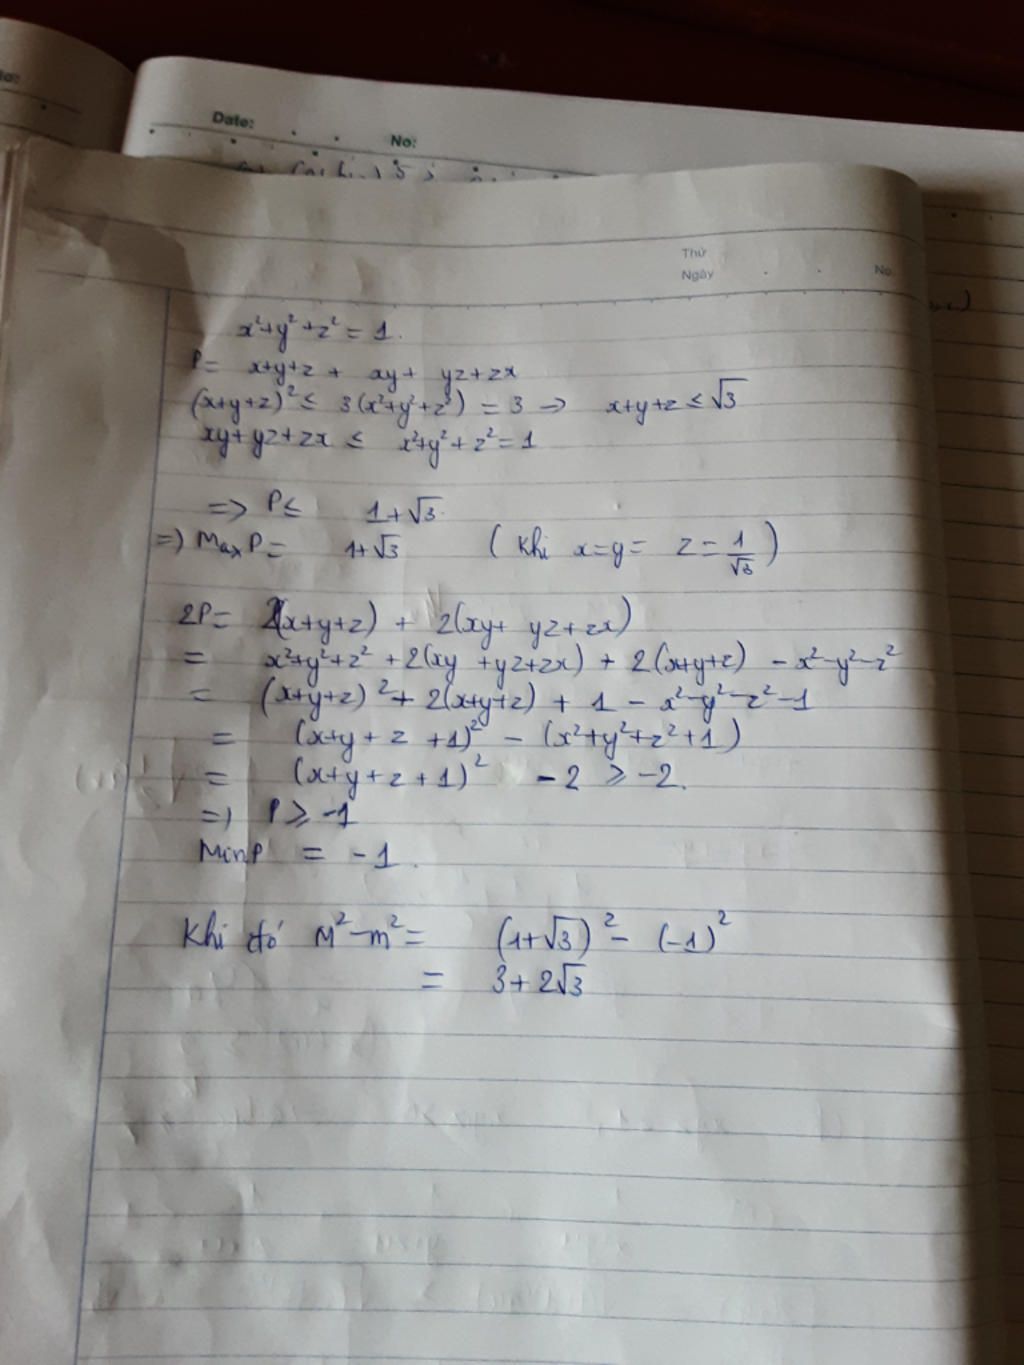 No:
Date:
No:
Thứ
Ngày
No
x²+y²+z² = 1.
P = x+y+z + xy + yz+zx
(x+y+z)² ≤ 3(x²+y²+z²) = 3 → x+y+z ≤ √3
xy+yz+zx ≤ x²+y²+z² = 1
=> P ≤ 1+√3
=> Max P = 1+√3 ( Khi x=y= z = 1/√3 )
2P = 2(x+y+z) + 2(xy+ yz+zx)
= x²+y²+z² +2(xy +yz+zx) + 2(x+y+z) - x²-y²-z²
= (x+y+z)² + 2(x+y+z) + 1 - x²-y²-z²-1
= (x+y+z +1)² - (x²+y²+z²+1)
= (x+y+z+1)² - 2 ≥ -2.
=> P ≥ -1
MinP = -1.
Khi đó M²-m² = (1+√3)² - (-1)²
= 3+2√3